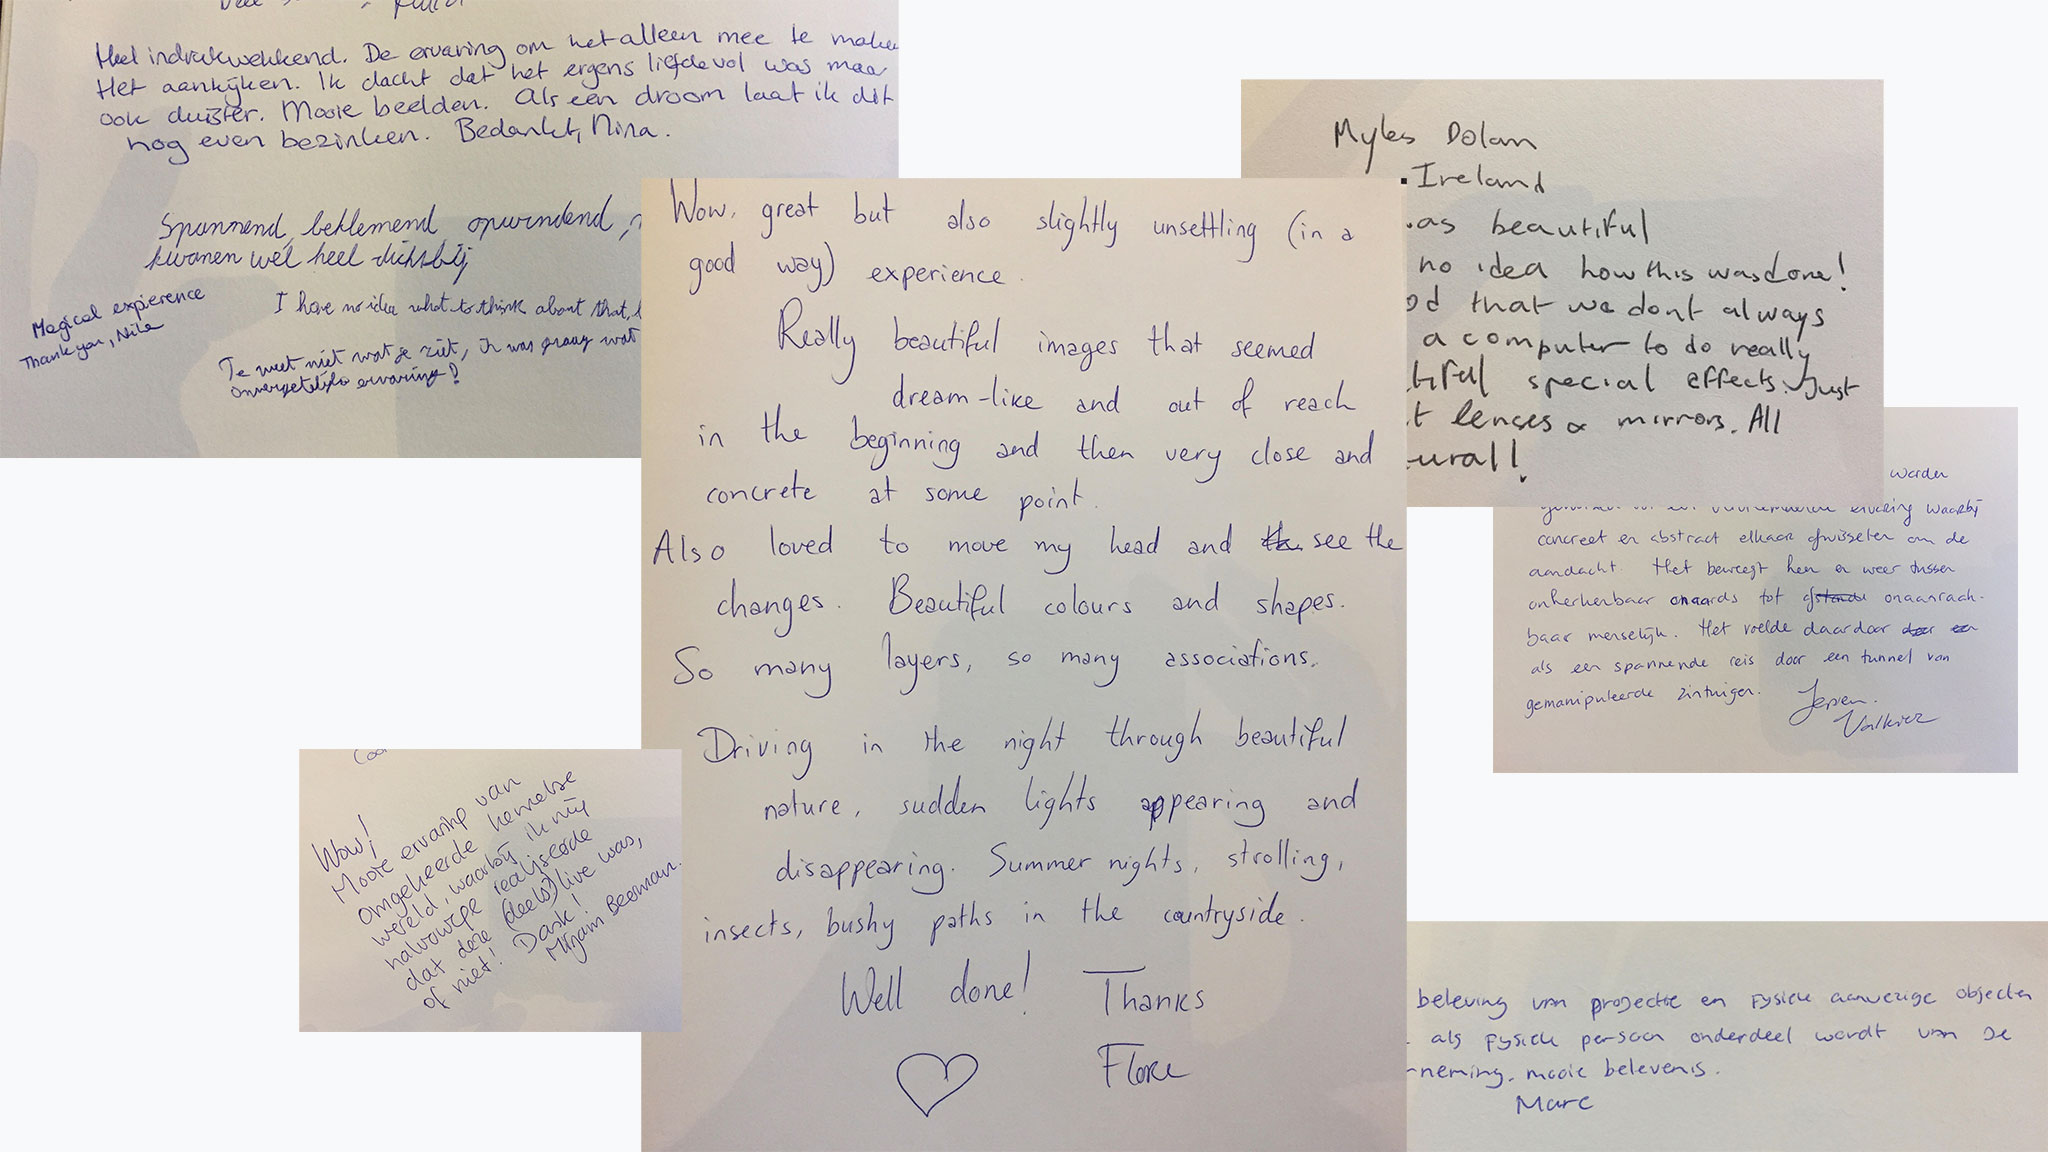 Heel indrukwekkend. De ervaring om het alleen mee te maken
Het aankijken. Ik dacht dat het ergens liefdevol was maar
ook duister. Mooie beelden. Als een droom laat ik dit
nog even bezinken. Bedankt, Nina.
Spannend, beklemend opwindend,
kwamen wel heel dichtbij
Magical expierence
Thank you, Nile
I have no idea what to think about that,
Je weet niet wat je ziet, Ik was graag wat
Onvergetelijke ervaring!
Wow, great but also slightly unsettling (in a
good way) experience.
Really beautiful images that seemed
dream-like and out of reach
in the beginning and then very close and
concrete at some point.
Also loved to move my head and see the
changes. Beautiful colours and shapes.
So many layers, so many associations.
Driving in the night through beautiful
nature, sudden lights appearing and
disappearing. Summer nights, strolling,
insects, bushy paths in the countryside.
Well done! Thanks
Flore
Myles Dolan
Ireland
as beautiful
no idea how this was done!
od that we dont always
a computer to do really
special effects. Just
t lenses & mirrors. All
ural!
worden
ervaring waarbij
concreet en abstract elkaar afwisselen om de
aandacht. Het beweegt heen en weer tussen
onherkenbaar onaards tot onaanraak-
baar menselijk. Het voelde daardoor
als een spannende reis door een tunnel van
gemanipuleerde zintuigen.
Wow!
Mooie ervaring van
omgekeerde hemelse
wereld, waarbij ik mij
halverwege realiseerde
dat deze (deels) live was,
of niet! Dank!
Mirjam Beerman.
beleving van projectie en fysiek aanwezige objecten
als fysiek persoon onderdeel wordt van de
neming. mooie belevenis.
Marc